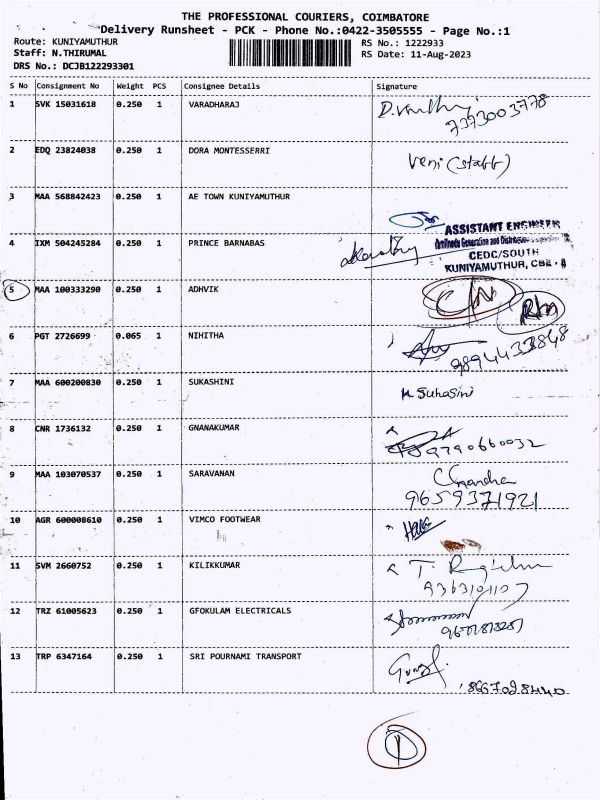 THE PROFESSIONAL COURIERS, COIMBATORE
Delivery Runsheet - PCK - Phone No.:0422-3505555 - Page No.:1
Route: KUNIYAMUTHUR RS No.: 1222933
Staff: N.THIRUMAL RS Date: 11-Aug-2023
DRS No.: DCJB122293301
S No Consignment No Weight PCS Consignee Details Signature
1 SVK 15031618 0.250 1 VARADHARAJ
7373003778
2 EDQ 23824038 0.250 1 DORA MONTESSERRI Veni (staff)
3 MAA 568842423 0.250 1 AE TOWN KUNIYAMUTHUR
ASSISTANT ENGINEER
4 IXM 504245284 0.250 1 PRINCE BARNABAS
CEDC/SOUTH
KUNIYAMUTHUR, CBE - 8
5 MAA 100333290 0.250 1 ADHVIK C/N
6 PGT 2726699 0.065 1 NIHITHA
9894433848
7 MAA 600200830 0.250 1 SUKASHINI M Suhasini
8 CNR 1736132 0.250 1 GNANAKUMAR 9790660032
9 MAA 103070537 0.250 1 SARAVANAN Chandra
9659371921
10 AGR 600008610 0.250 1 VIMCO FOOTWEAR
11 SVM 2660752 0.250 1 KILIKKUMAR
12 TRZ 61005623 0.250 1 GFOKULAM ELECTRICALS
13 TRP 6347164 0.250 1 SRI POURNAMI TRANSPORT
1